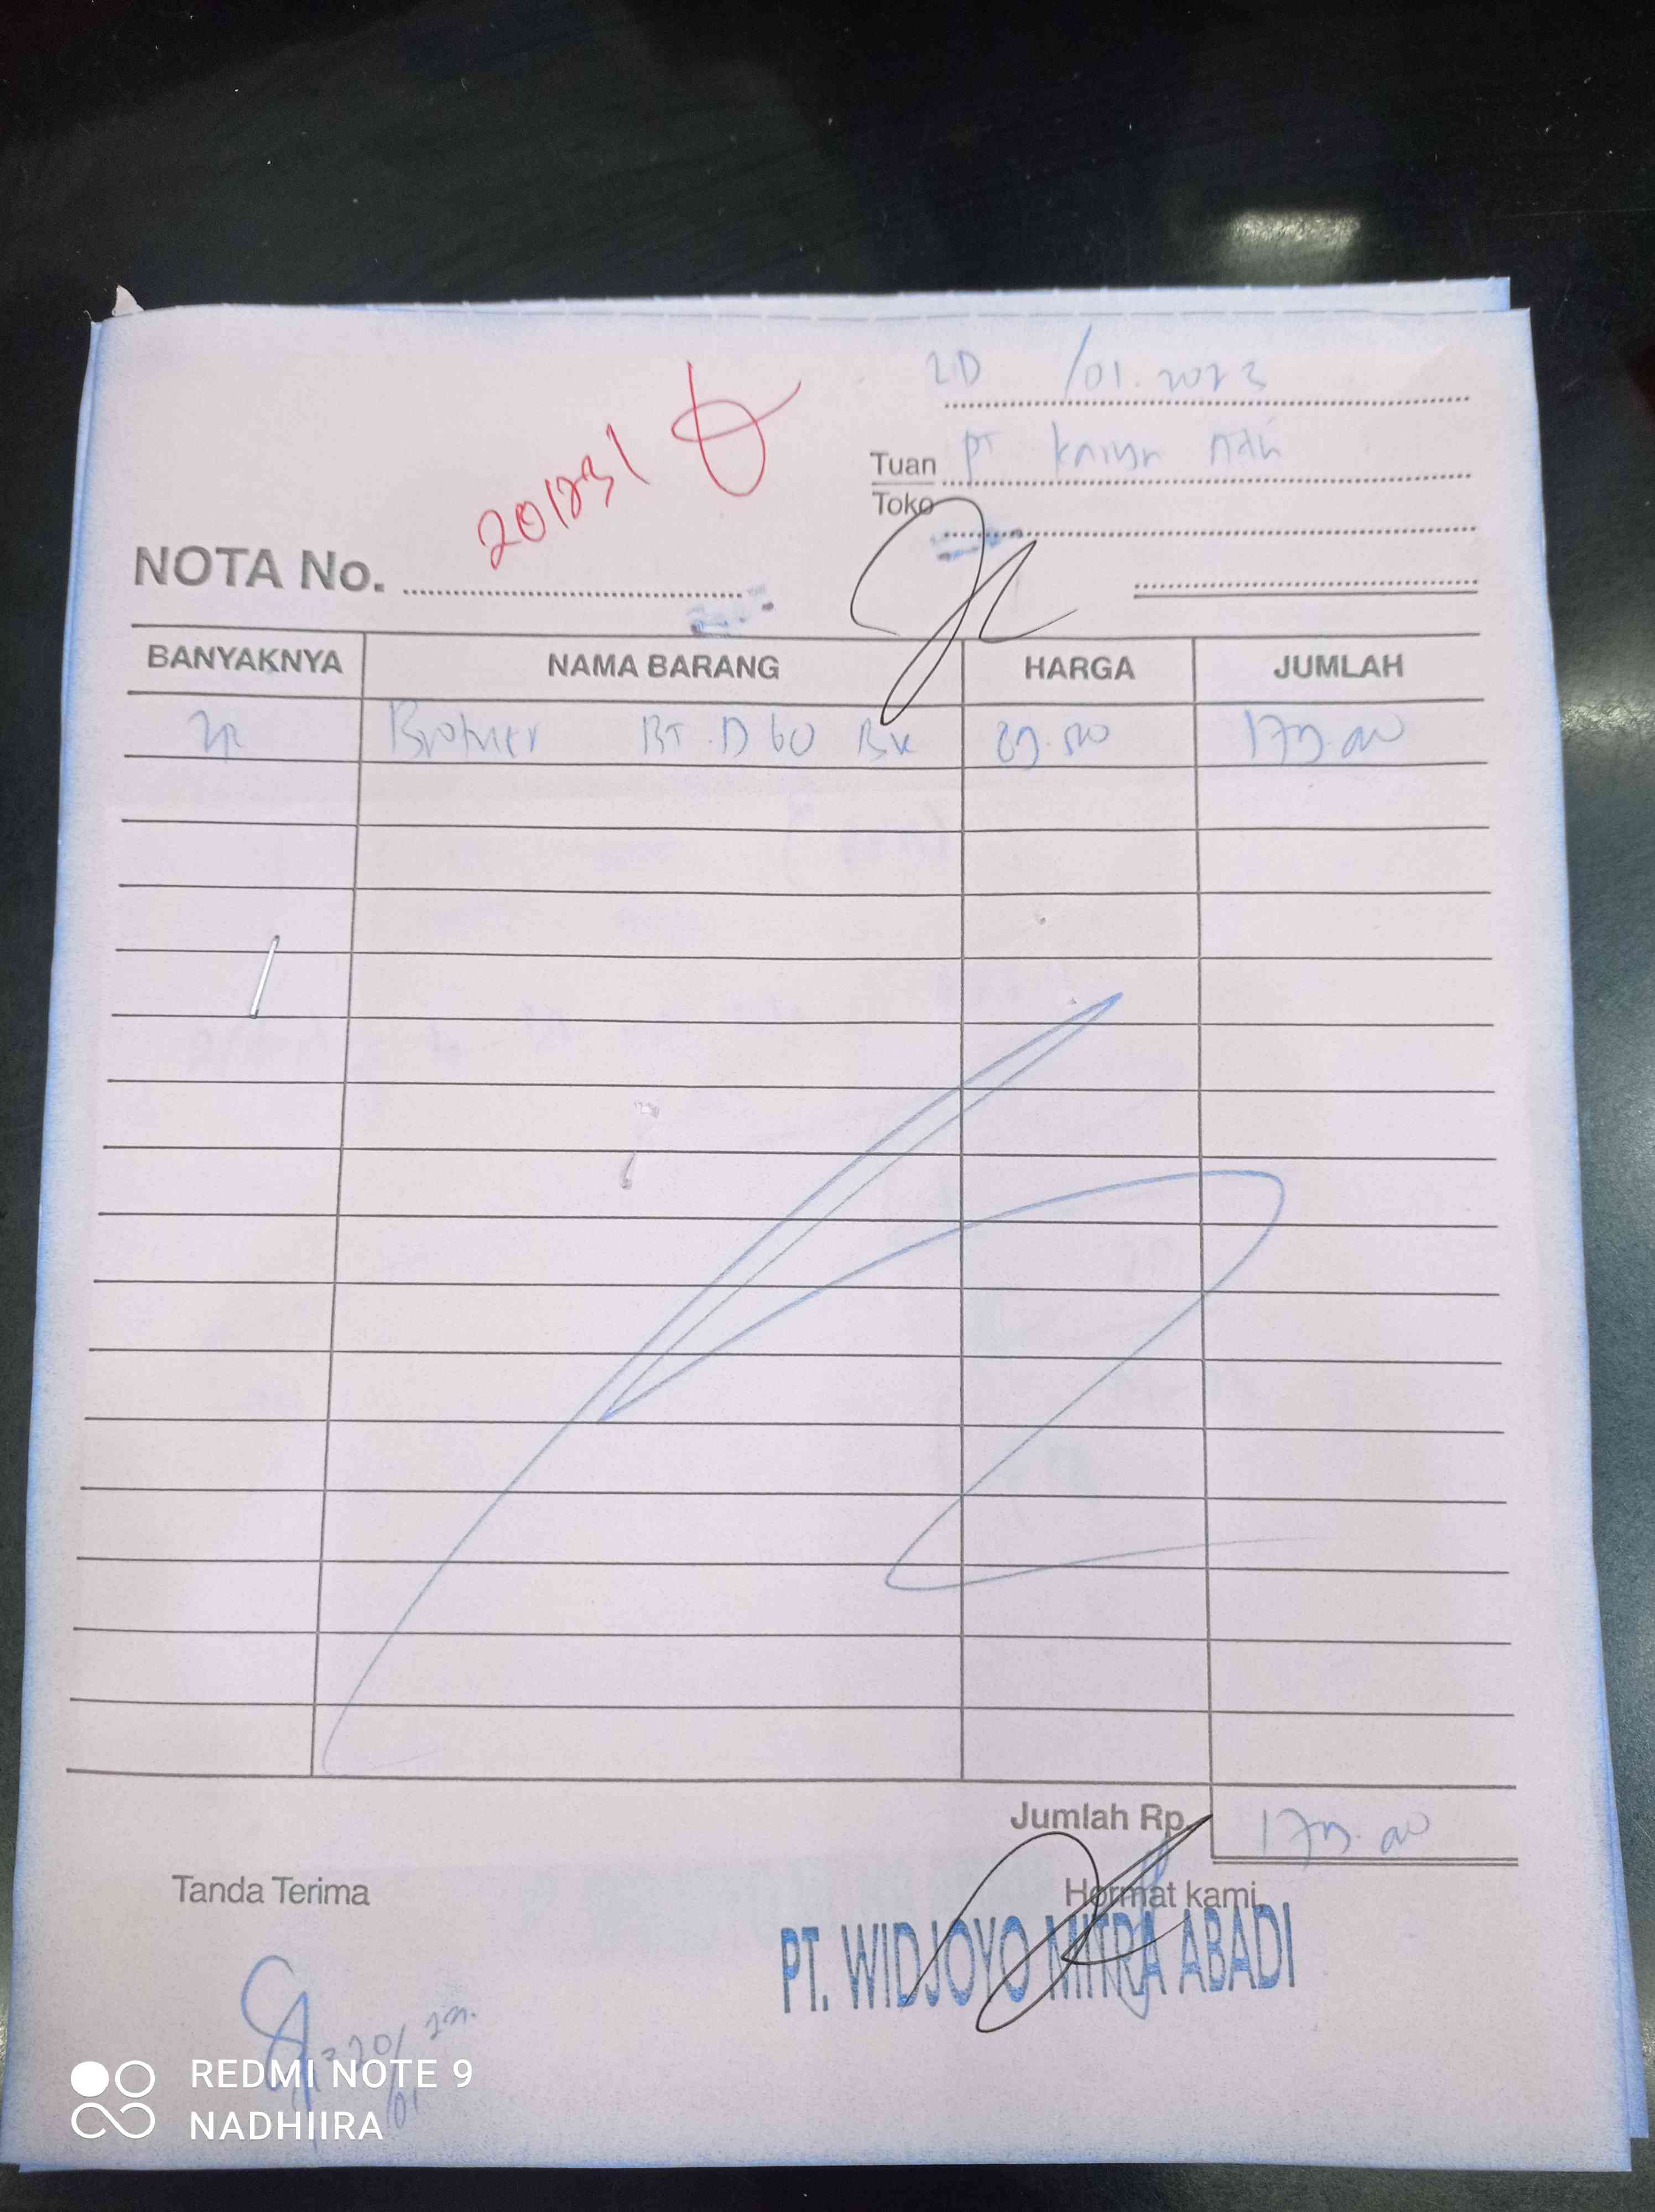 20 /01.2023
Tuan PT
Toko
201231
NOTA No.
BANYAKNYA NAMA BARANG HARGA JUMLAH
Brother BT.D 60 BK 89.500 179.000
Jumlah Rp. 179.000
Tanda Terima
Hormat kami,
PT. WIDJOYO MITRA ABADI
20/
01
REDMI NOTE 9
NADHIIRA